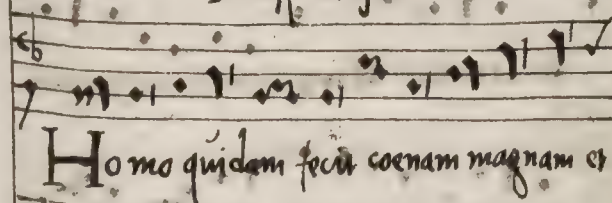 Homo quidam fecit coenam magnam et